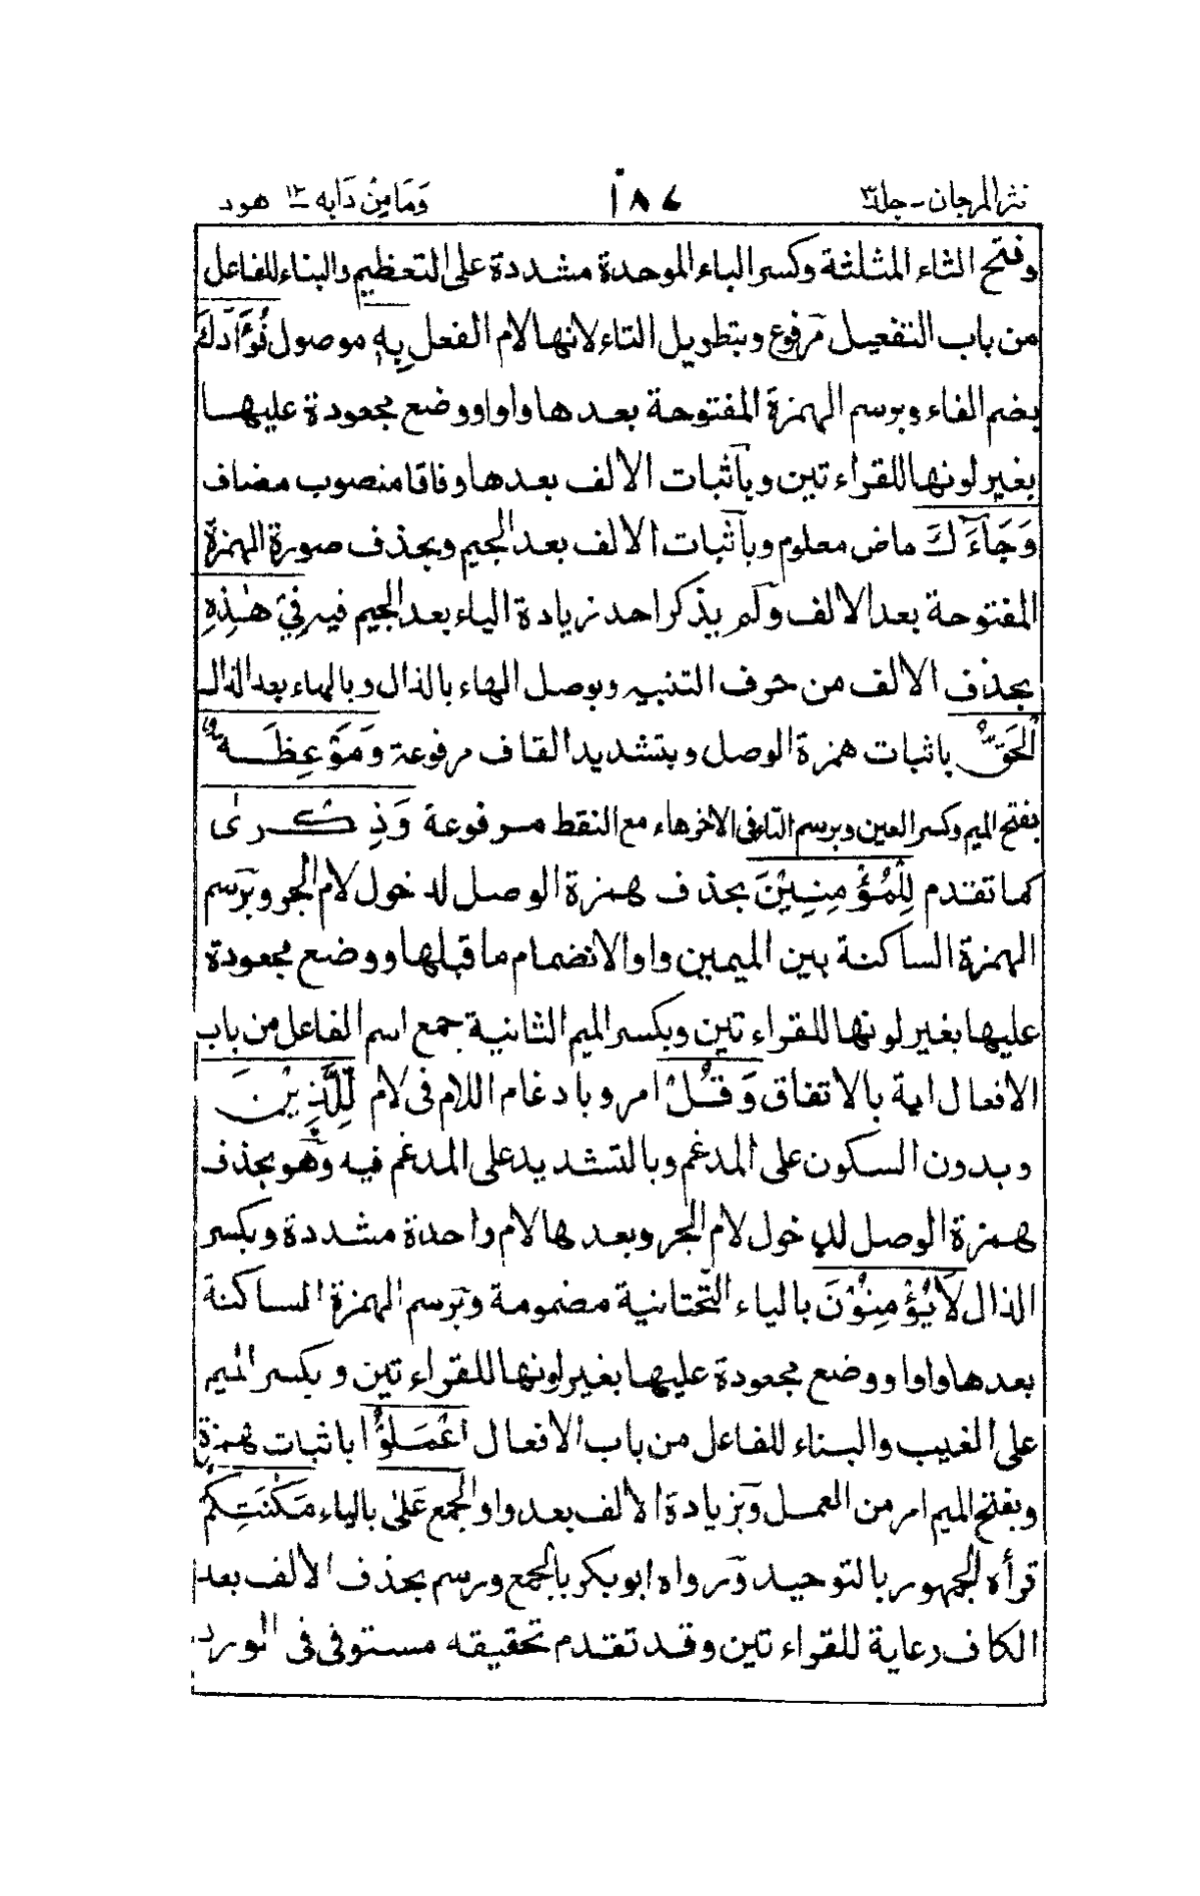 نثر المرجان - جلد٣ ١٨٤ وَمَا مِنْ دَابه ١٢ هود
وفتح الثاء المثلثة وكسر الباء الموحدة مشددة على التعظيم والبناء للفاعل
من باب التفعيل مرفوع وبتطويل التاء لانها لام الفعل بِهٖ موصول فُؤَادَكَ
بضم الفاء وبرسم الهمزة المفتوحة بعدها واوا ووضع مجعودة عليها
بغير لونها للقراءتين وباثبات الالف بعدها وفاقا منصوب مضاف
وَجَآءَكَ ماض معلوم وباثبات الالف بعد الجيم وبحذف صورة الهمزة
المفتوحة بعد الالف ولم يذكر احد زيادة الياء بعد الجيم فيه فِيْ هٰذِهِ
بحذف الالف من حرف التنبيه وبوصل الهاء بالذال وبالهاء بعد الذال
الْحَقُّ باثبات همزة الوصل وبتشديد القاف مرفوعة وَمَوْعِظَةٌ
بفتح الميم وكسر العين وبرسم التاء فى الاخر هاء مع النقط مرفوعة وَذِكْرٰى
كما تقدم لِلْمُؤْمِنِيْنَ بحذف همزة الوصل لدخول لام الجر وبرسم
الهمزة الساكنة بين الميمين واوا لانضمام ما قبلها ووضع مجعودة
عليها بغير لونها للقراءتين وبكسر الميم الثانية جمع اسم الفاعل من باب
الافعال اية بالاتفاق وَقُلْ امر وبادغام اللام فى لام لِلَّذِيْنَ
وبدون السكون على المدغم وبالتشديد على المدغم فيه وهو بحذف
همزة الوصل لدخول لام الجر وبعدها لام واحدة مشددة وبكسر
الذال لَا يُؤْمِنُوْنَ بالياء التحتانية مضمومة وبرسم الهمزة الساكنة
بعدها واوا ووضع مجعودة عليها بغير لونها للقراءتين وبكسر الميم
على الغيب والبناء للفاعل من باب الافعال اعْمَلُوْا باثبات همزة
وبفتح الميم امر من العمل وبزيادة الالف بعد واو الجمع عَلٰى بالياء مَكٰنَتِكُمْ
قرأه الجمهور بالتوحيد ورواه ابو بكر بالجمع ورسم بحذف الالف بعد
الكاف رعاية للقراءتين وقد تقدم تحقيقه مستوفى فى